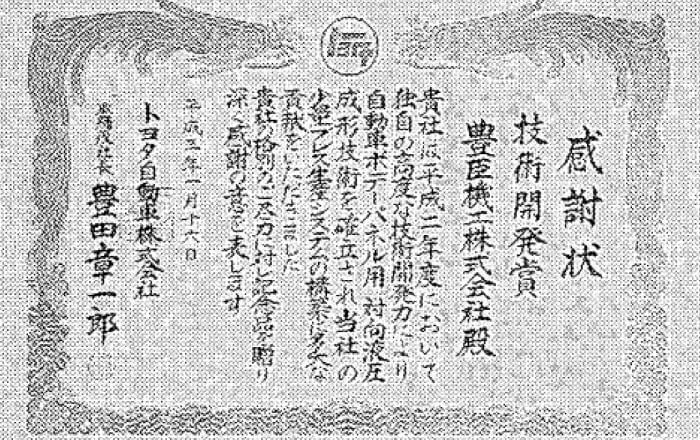 感謝状
技術開発賞
豊臣機工株式会社殿
貴社は平成二年度において
独自の高度な技術開発力により
自動車ボデーパネル用対向液圧
成形技術を確立され当社の
少量プレス生産システムの構築に多大な
貢献をいただきました
貴社の格別のご尽力に対し記念品を贈り
深く感謝の意を表します
平成三年一月十六日
トヨタ自動車株式会社
取締役社長 豊田章一郎